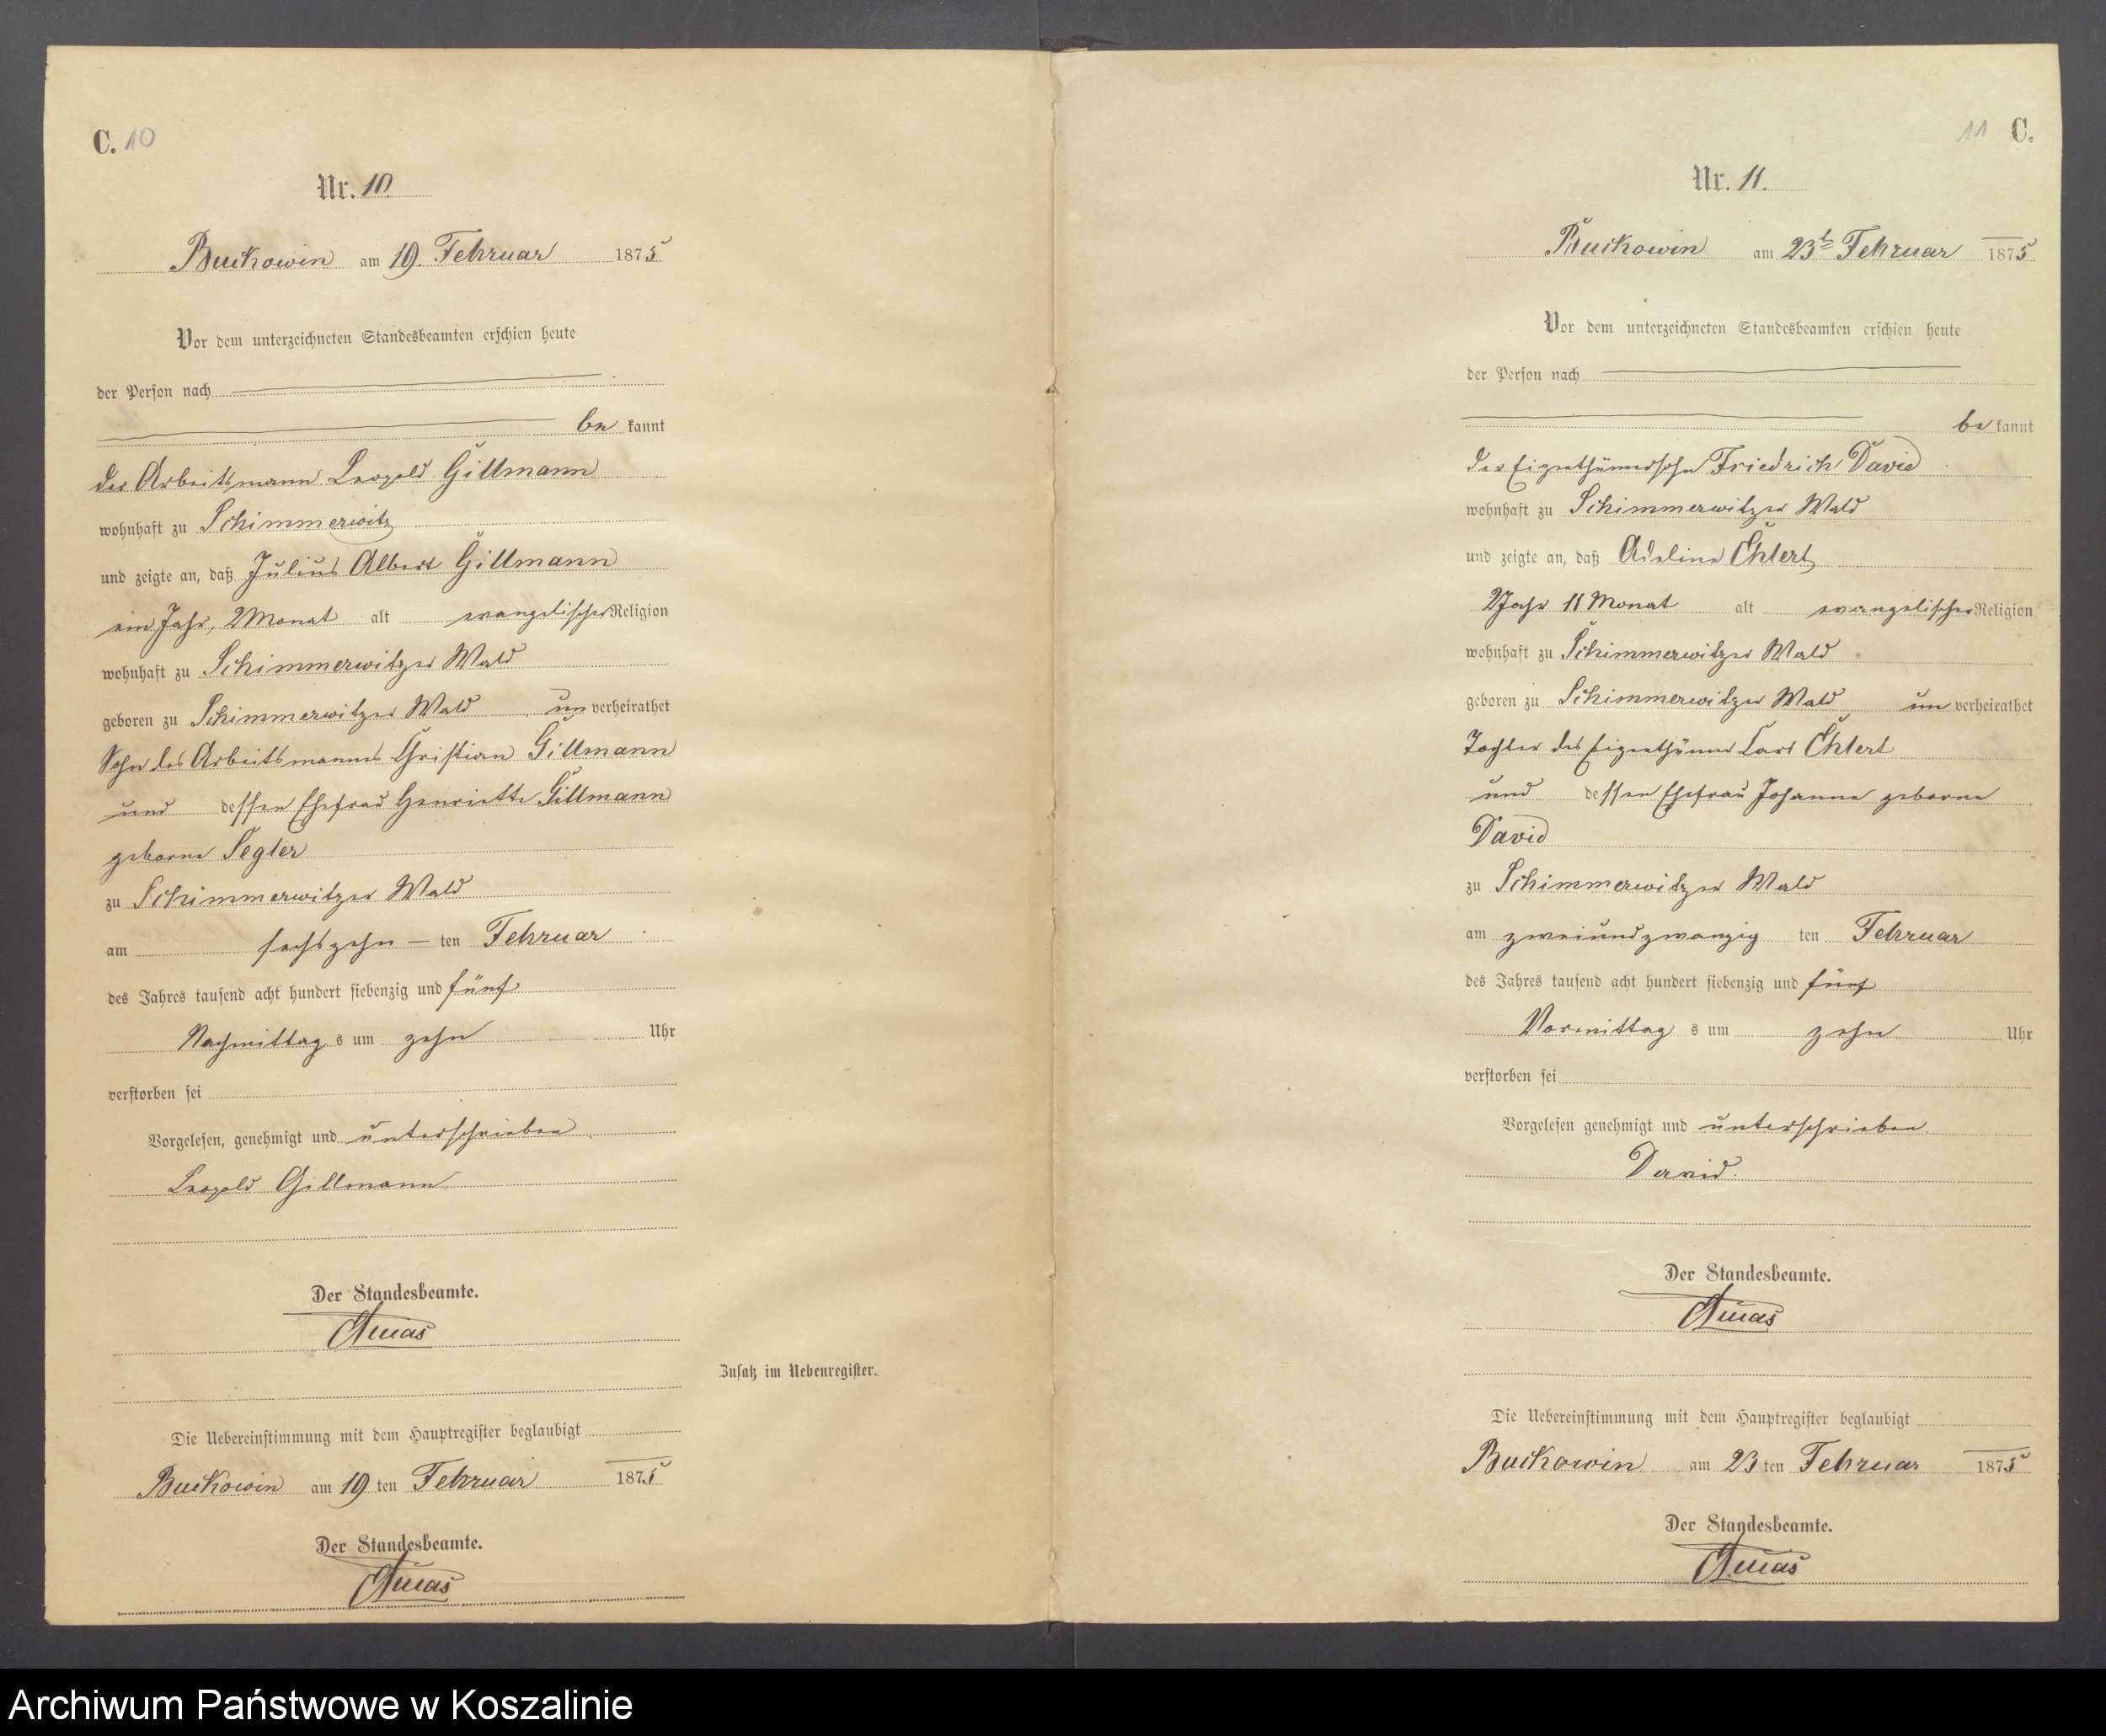 C. 10
Nr. 10.
Buckowin am 19. Februar 1875
Vor dem unterzeichneten Standesbeamten erschien heute
der Person nach
be kannt
der Arbeitsmann Leopold Gillmann
wohnhaft zu Schimmerwitz
und zeigte an, daß Julius Albert Gillmann
ein Jahr, 2 Monat alt evangelischer Religion
wohnhaft zu Schimmerwitzer Wald
geboren zu Schimmerwitzer Wald un verheirathet
Sohn des Arbeitsmannes Christian Gillmann
und dessen Ehefrau Henriette Gillmann
geborne Segler
zu Schimmerwitzer Wald
am sechszehn – ten Februar
des Jahres tausend acht hundert siebenzig und fünf
Nachmittag s um zehn Uhr
verstorben sei
Vorgelesen, genehmigt und unterschrieben
Leopold Gillmann
Der Standesbeamte.
Zusatz im Nebenregister.
Die Uebereinstimmung mit dem Hauptregister beglaubigt
Buckowin am 19 ten Februar 1875
Der Standesbeamte.
11 C.
Nr. 11.
Buckowin am 23t Februar 1875
Vor dem unterzeichneten Standesbeamten erschien heute
der Person nach
be kannt
der Eigenthümersohn Friedrich David
wohnhaft zu Schimmerwitzer Wald
und zeigte an, daß Adeline Ehlert
2 Jahr 11 Monat alt evangelischer Religion
wohnhaft zu Schimmerwitzer Wald
geboren zu Schimmerwitzer Wald un verheirathet
Tochter des Eigenthümer Carl Ehlert
und dessen Ehefrau Johanne geborne
David
zu Schimmerwitzer Wald
am zweiundzwanzig ten Februar
des Jahres tausend acht hundert siebenzig und fünf
Vormittag s um zehn Uhr
verstorben sei
Vorgelesen genehmigt und unterschrieben.
David.
Der Standesbeamte.
Die Uebereinstimmung mit dem Hauptregister beglaubigt
Buckowin am 23 ten Februar 1875
Der Standesbeamte.
Archiwum Państwowe w Koszalinie